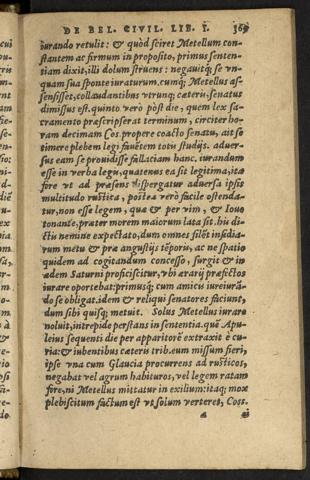 DE BEL. CIVIL. LIB. I. 369
iurando retulit: & quòd sciret Metellum con-
stantem ac firmum in proposito, primus senten-
tiam dixit, illi dolum struens: negauitq; se vn-
quam sua sponte iuraturum. cumq; Metellus as-
sensisset, collaudantibus vtrunq; cæteris, senatus
dimissus est. quinto verò pòst die, quem lex sa-
cramento præscripserat terminum, circiter ho-
ram decimam Cos. propere coacto senatu, ait se
timere plebem legi fauētem totis studijs. aduer-
sus eam se prouidisse fallaciam hanc. iurandum
esse in verba legis, quatenus ea sit legitima, ita
fore vt ad præsens dispergatur aduersa ipsis
multitudo rustica, postea verò facile ostenda-
tur, non esse legem, quæ & per vim, & Ioue
tonante, præter morem maiorum lata sit. his di-
ctis nemine expectato, dum omnes silēt insidia-
rum metu & præ angustijs tēporis, ac ne spatio
quidem ad cogitandum concesso, surgit & in
ædem Saturni proficiscitur, vbi ærarij præfectos
iurare oportebat: primusq; cum amicis iureiurā-
do se obligat. idem & reliqui senatores faciunt,
dum sibi quisq; metuit. Solus Metellus iurare
noluit, intrepide perstans in sententia. quē Apu-
leius sequenti die per apparitorē extraxit è cu-
ria: & iubentibus cæteris trib. eum missum fieri,
ipse vna cum Glaucia procurrens ad rusticos,
negabat vel agrum habituros, vel legem ratam
fore, ni Metellus mittatur in exilium: itaq; mox
plebiscitum factum est vt solum verteret, Coss.